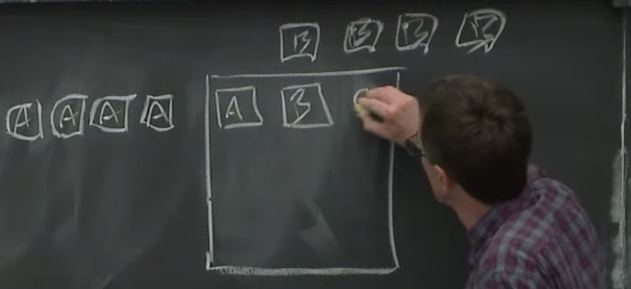 B B B B
A A A A A B